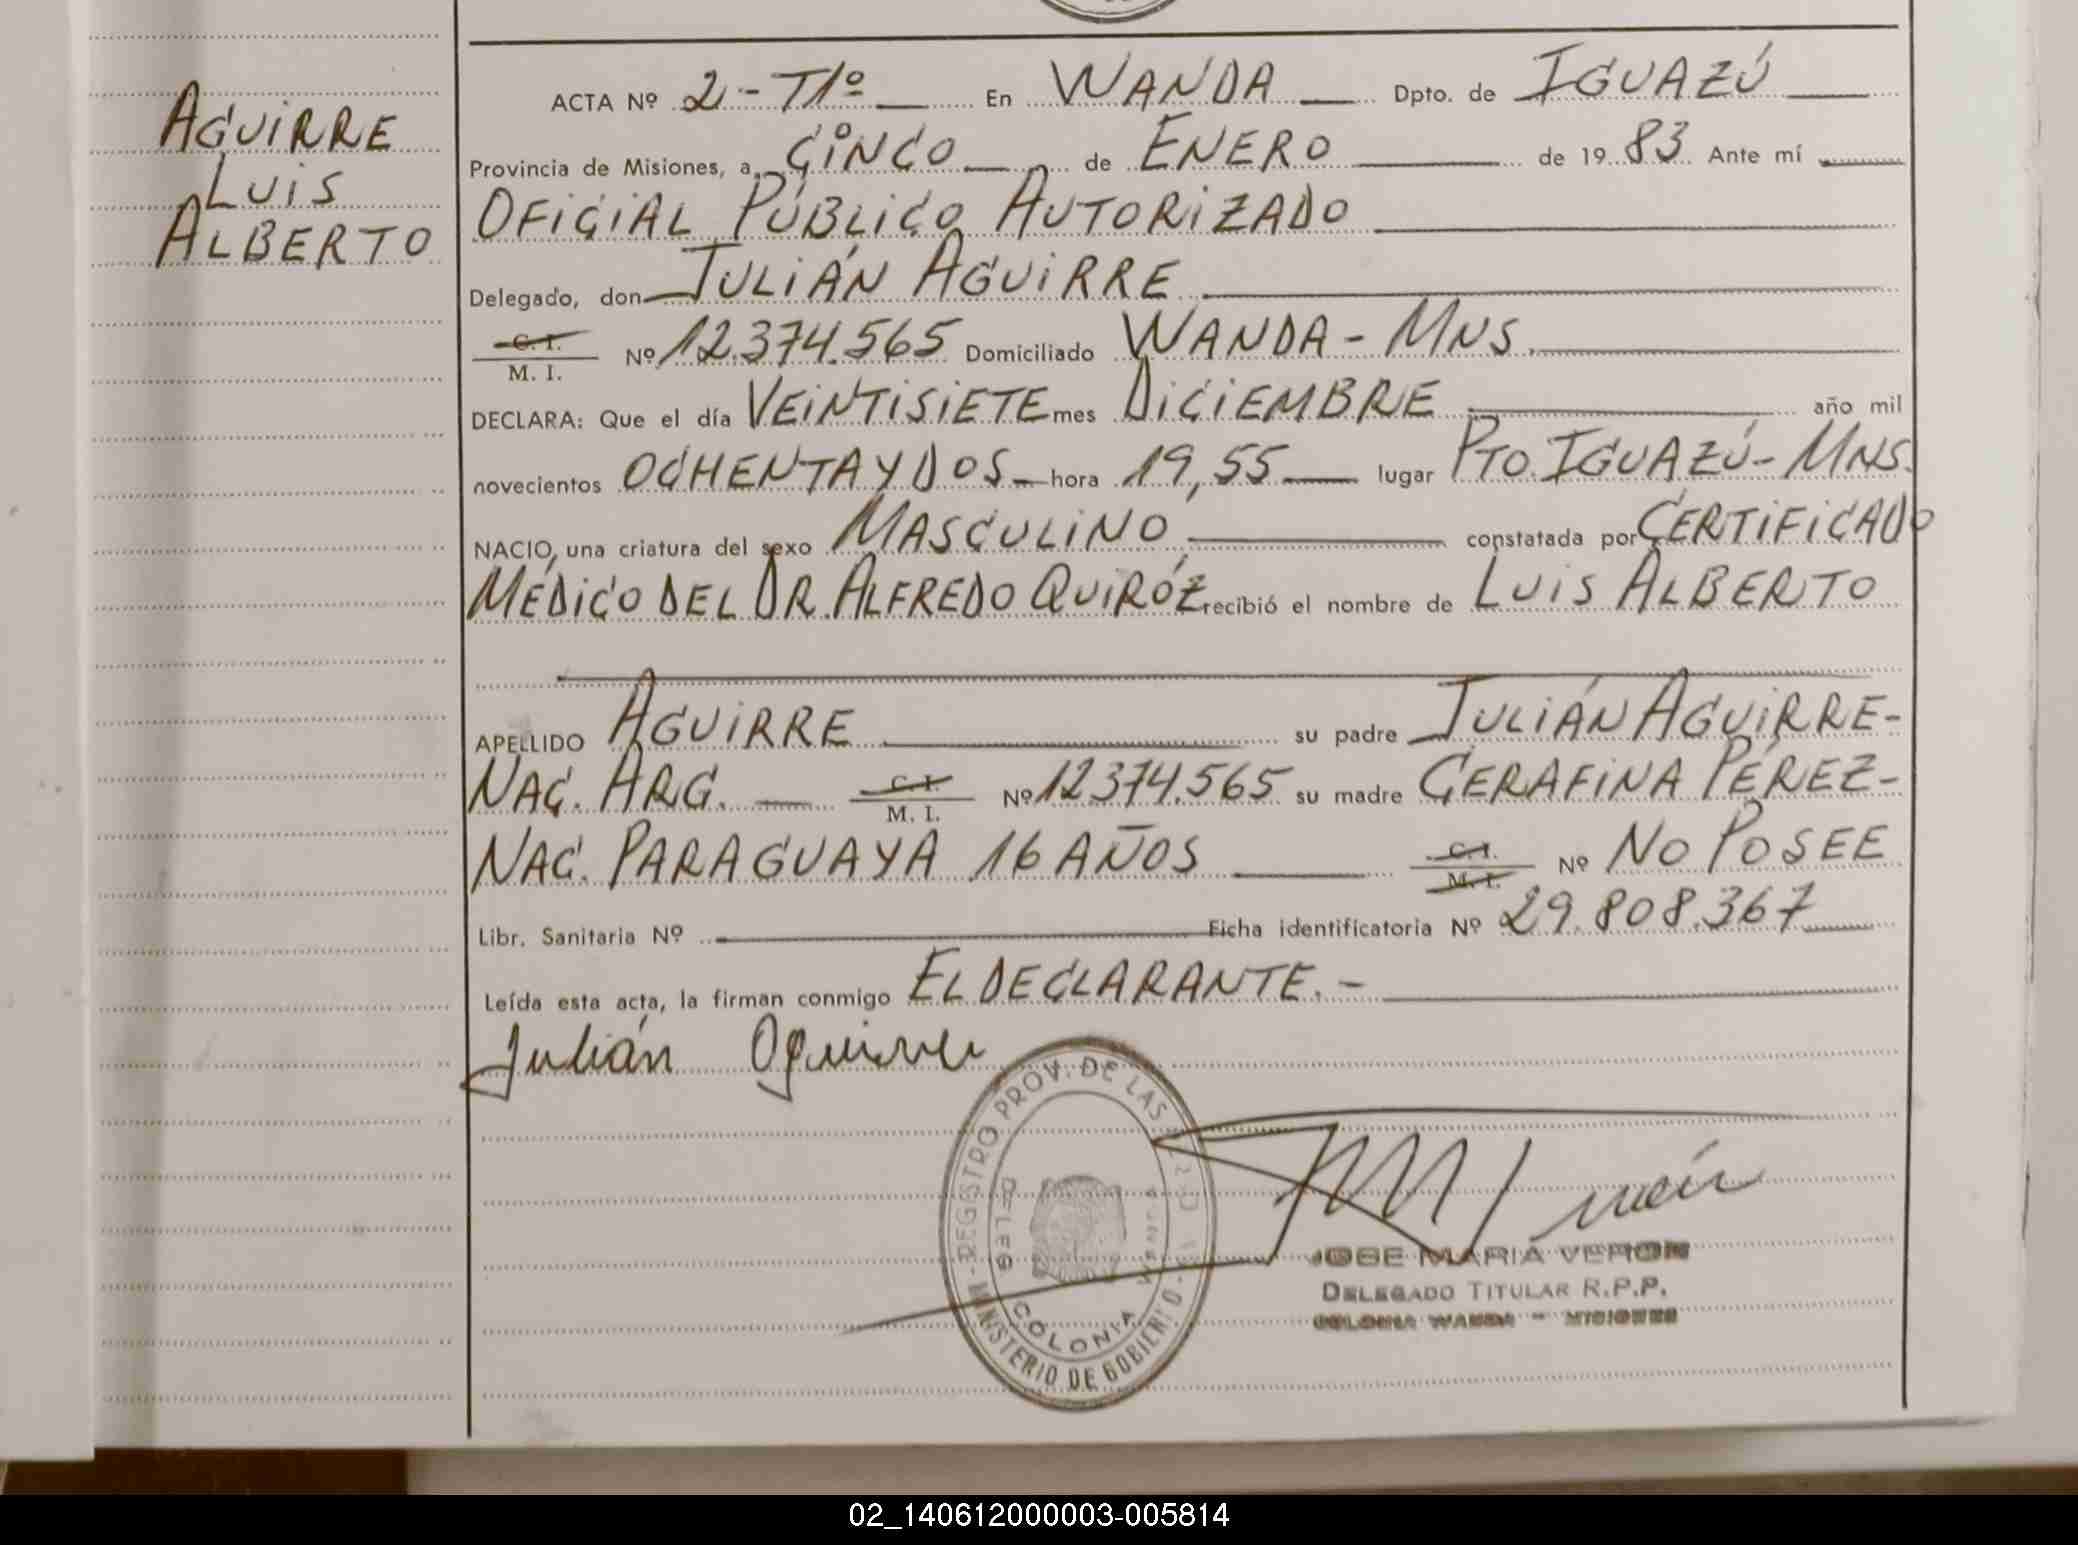 AGUIRRE
LUIS
ALBERTO
ACTA Nº 2 - T1º En WANDA Dpto. de IGUAZÚ
Provincia de Misiones, a CINCO de ENERO de 1983 Ante mí
OFICIAL PÚBLICO AUTORIZADO
Delegado, don JULIÁN AGUIRRE
C. I.
M. I. Nº 12.374.565 Domiciliado WANDA - MNS.
DECLARA: Que el día VEINTISIETE mes DICIEMBRE año mil
novecientos OCHENTA Y DOS hora 19,55 lugar PTO. IGUAZÚ - MNS.
NACIO, una criatura del sexo MASCULINO constatada por CERTIFICADO
MÉDICO DEL DR. ALFREDO QUIRÓZ recibió el nombre de LUIS ALBERTO
APELLIDO AGUIRRE su padre JULIÁN AGUIRRE-
NAC. ARG. C. I. M. I. Nº 12.374.565 su madre CERAFINA PÉREZ-
NAC. PARAGUAYA 16 AÑOS C. I. M. I. Nº NO POSEE
Libr. Sanitaria Nº Ficha identificatoria Nº 29.808.367
Leída esta acta, la firman conmigo EL DECLARANTE.-
Julián Aguirre
REGISTRO PROV. DE LAS
DELEG
COLONIA WANDA
MINISTERIO DE GOBIERNO
JOSE MARIA VERON
DELEGADO TITULAR R.P.P.
COLONIA WANDA - MISIONES
02_140612000003-005814